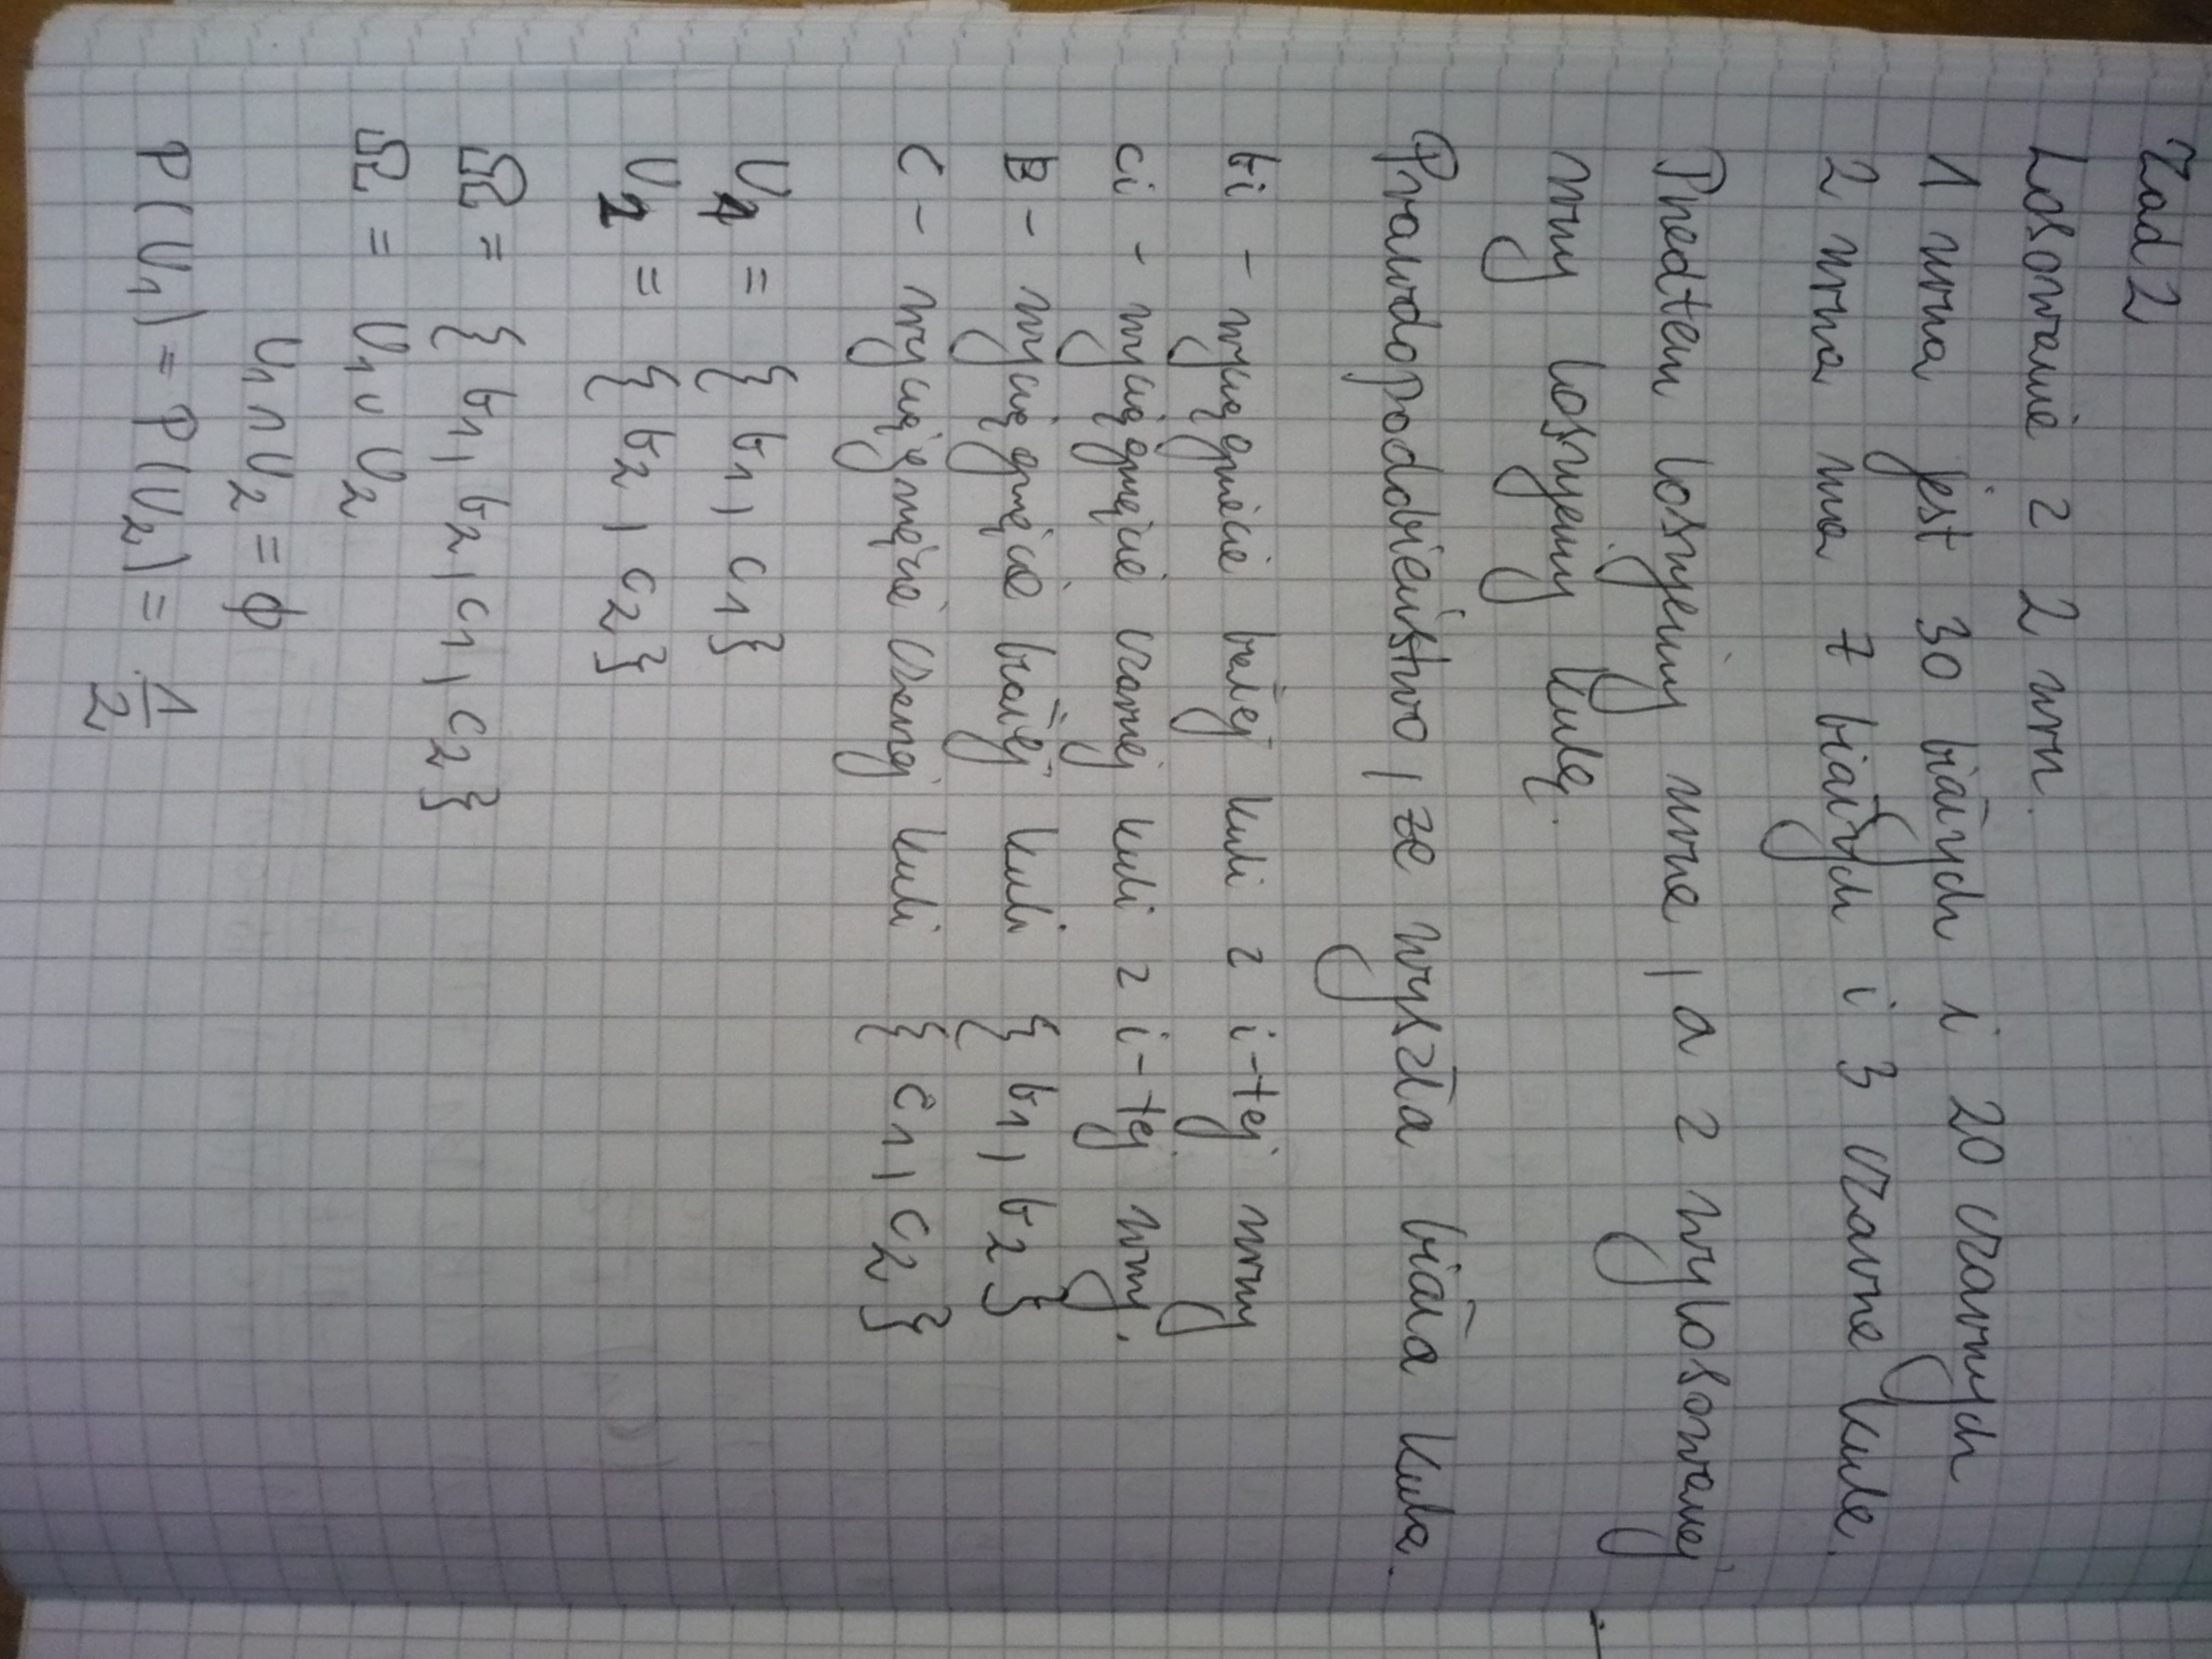 Zad 2
Losowanie z 2 urn.
1 urna jest 30 białych i 20 czarnych
2 urna ma 7 białych i 3 czarne kule.
Przedtem losujemy urnę, a z wylosowanej
urny losujemy kulę.
Prawdopodobieństwo, że wyszła biała kula.
bi - wyciągnięcie białej kuli z i-tej urny
ci - wyciągnięcie czarnej kuli z i-tej urny.
B - wyciągnięcie białej kuli {b₁, b₂}
C - wyciągnięcie czarnej kuli {c₁, c₂}
U₁ = {b₁, c₁}
U₂ = {b₂, c₂}
Ω = {b₁, b₂, c₁, c₂}
Ω = U₁ ∪ U₂
U₁ ∩ U₂ = ϕ
P(U₁) = P(U₂) = 1/2